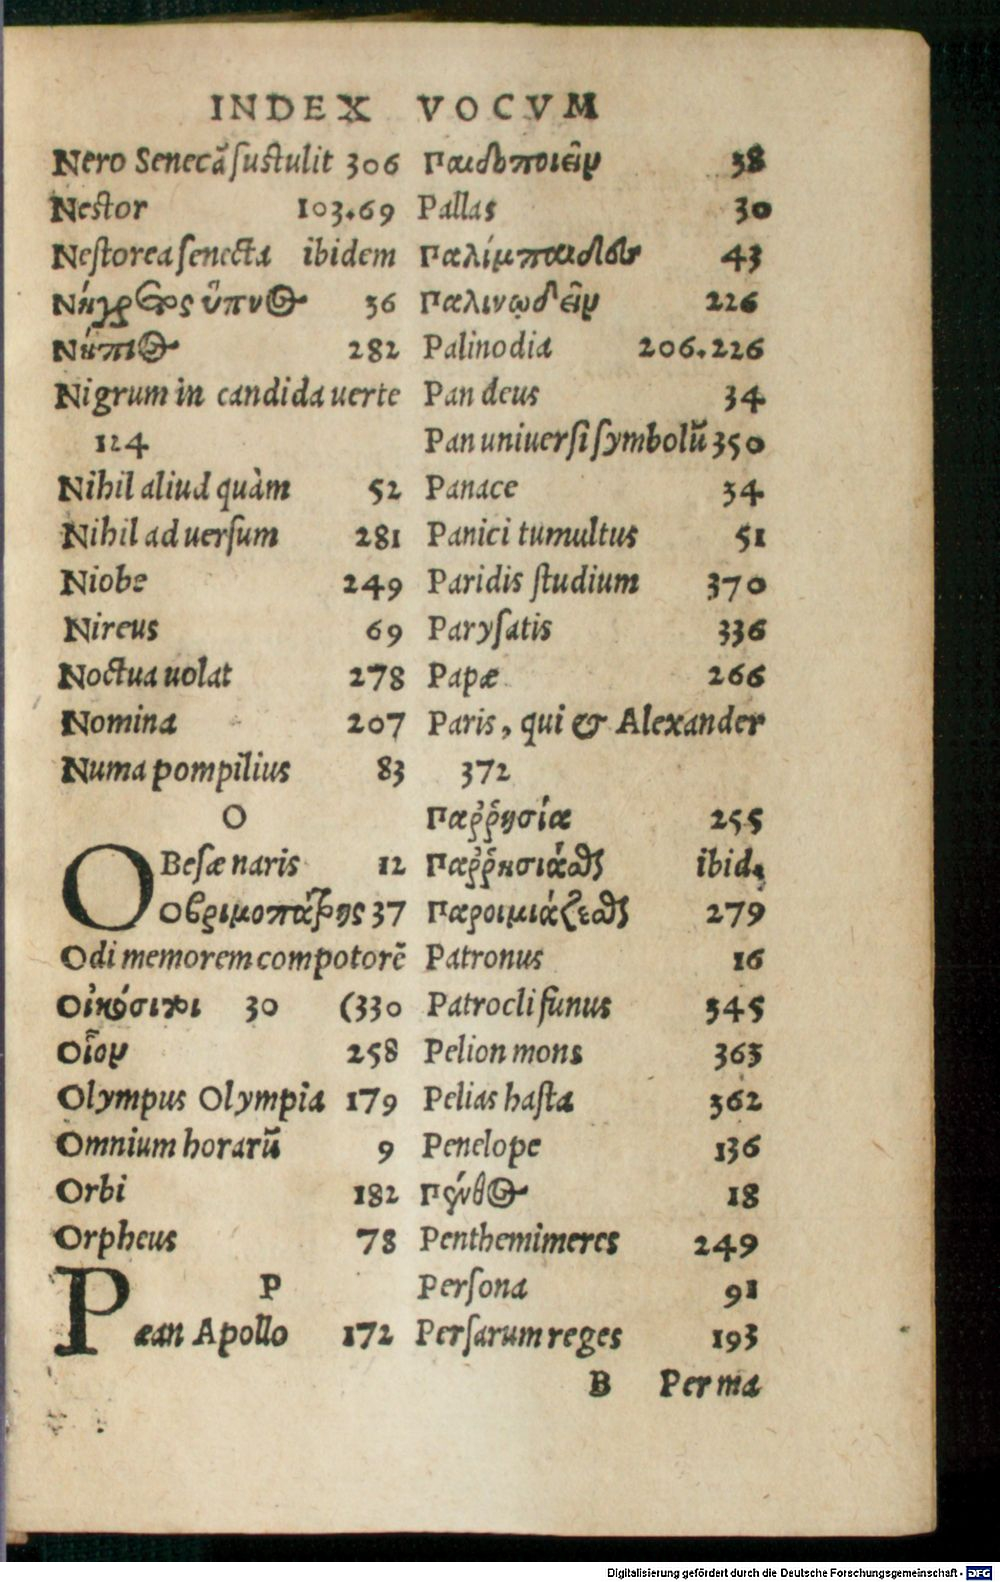 INDEX VOCVM
Nero Senecā sustulit 306
Nestor 103.69
Nestorea senecta ibidem
Νήγρετος ὕπνος 36
Νήπιος 282
Nigrum in candida uerte
124
Nihil aliud quàm 52
Nihil ad uersum 281
Niobe 249
Nireus 69
Noctua uolat 278
Nomina 207
Numa pompilius 83
O
OBesæ naris 12
Οβριμοπάτρης 37
Odi memorem compotorē
(330
Οἰκόσιτοι 30
Οἷον 258
Olympus Olympia 179
Omnium horarū 9
Orbi 182
Orpheus 78
P
Pæan Apollo 172
Παιδοποιεῖν 38
Pallas 30
Παλίμπαιδες 43
Παλινῳδεῖν 226
Palinodia 206.226
Pan deus 34
Pan uniuersi symbolū 350
Panace 34
Panici tumultus 51
Paridis studium 370
Parysatis 336
Papæ 266
Paris, qui & Alexander
372
Παῤῥησία 255
Παῤῥησιάζεσθαι ibid.
Παροιμιάζεσθαι 279
Patronus 16
Patrocli funus 345
Pelion mons 363
Pelias hasta 362
Penelope 136
18
Penthemimeres 249
Persona 91
Persarum reges 193
B Perma
Digitalisierung gefördert durch die Deutsche Forschungsgemeinschaft - DFG